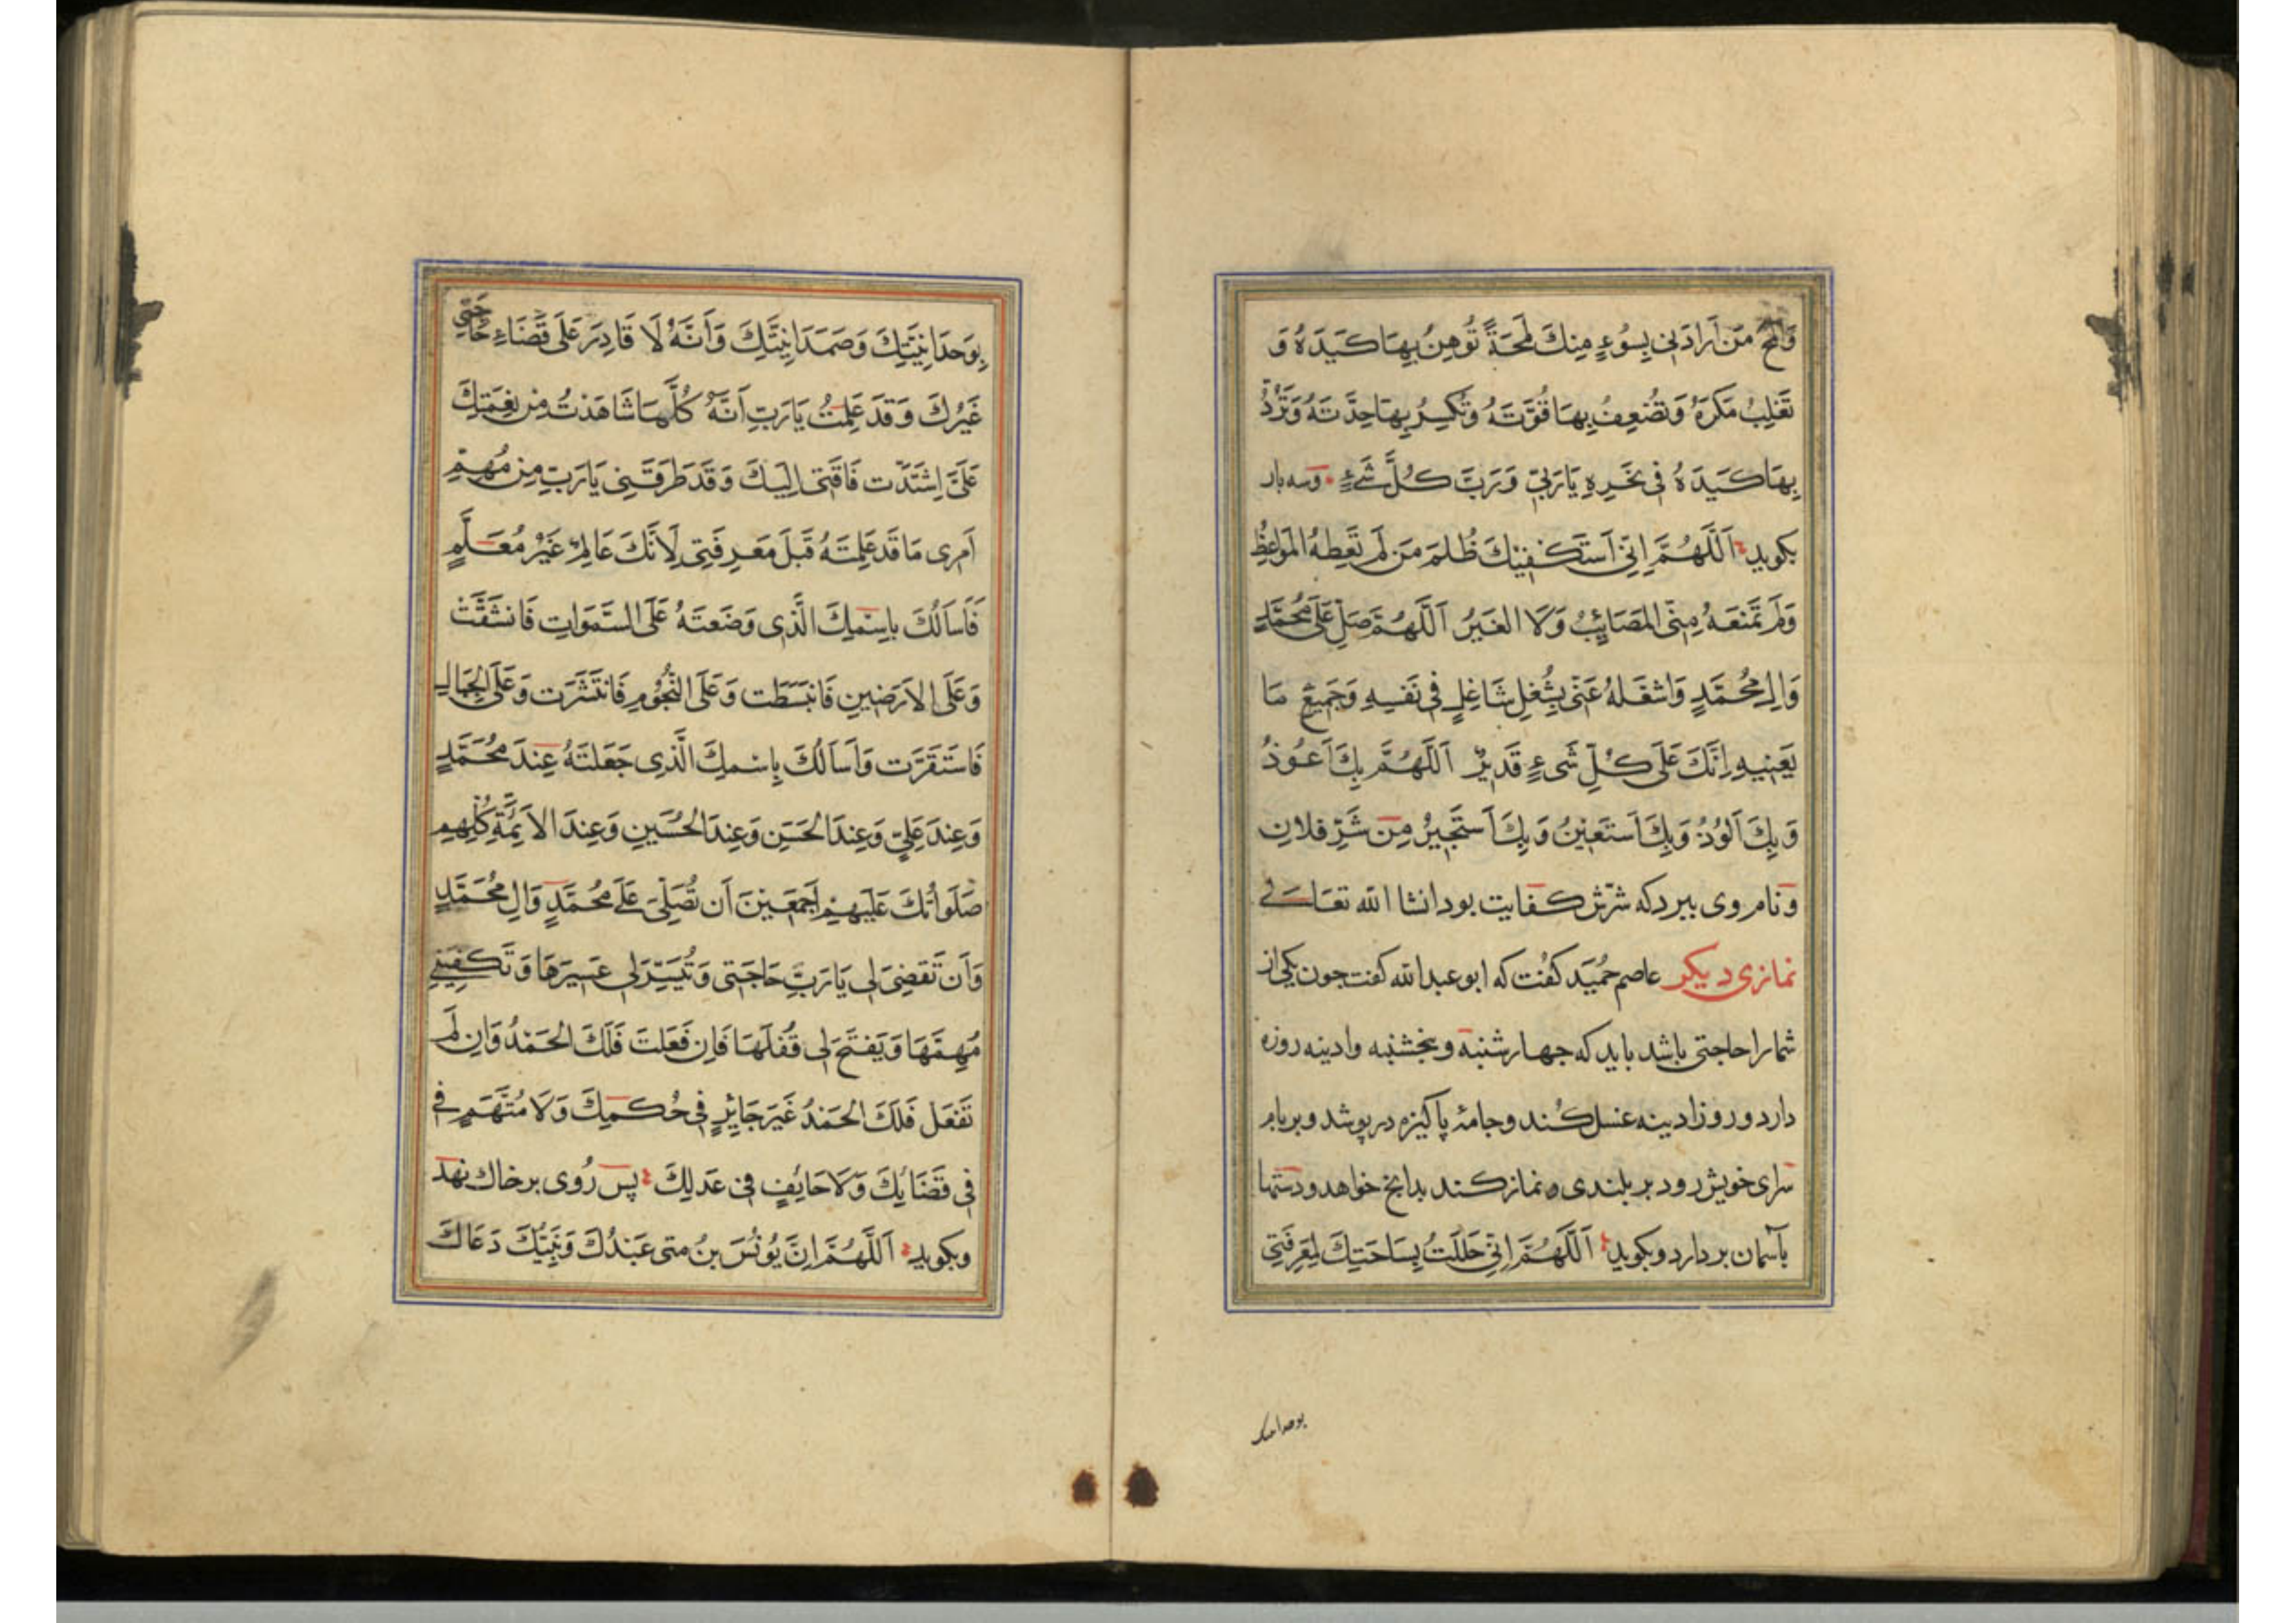 وَالمَح مَن اَرادَنِی بِسُوءٍ مِنكَ لَمحَةً تُوهِنُ بِهَا كَيدَهُ وَ
تَغلِبُ مَكرَهُ وَتُضعِفُ بِهَا قُوَّتَهُ وَتُكسِرُ بِهَا حِدَّتَهُ وَتَرُدُّ
بِهَا كَيدَهُ فی نَحرِهِ يَارَبّی وَرَبَّ كُلِّ شَیءٍ وسه بار
بكويد اَللّهُمَّ اِنّی اَستَكفِيكَ ظُلمَ مَن لَم تَعِظهُ المَواعِظُ
وَلَم تَمنَعهُ مِنّی المَصَائِبُ وَلَا الغِيَرُ اَللّهُمَّ صَلِّ عَلی مُحَمَّدٍ
وَالِ مُحَمَّدٍ وَاشغَلهُ عَنّی بِشُغلٍ شَاغِلٍ فی نَفسِهِ وَجَمِيعِ مَا
يَعنِيهِ اِنَّكَ عَلَی كُلِّ شَیءٍ قَدِيرٌ اَللّهُمَّ بِكَ اَعُوذُ
وَبِكَ اَلُوذُ وَبِكَ اَستَعِينُ وَبِكَ اَستَجِيرُ مِن شَرِّ فلانٍ
ونام وی ببرد كه شرّش كفايت بود انشا الله تعالی
نمازی ديكر عاصم حُمَيد كفت كه ابو عبد الله كفت جون يكی از
شما را حاجتی باشد بايد كه جهارشنبه و بنجشنبه وادينه روزه
دارد و روز ادينه غسل كُند و جامهٔ پاكيزه در پوشد و بر بام
سرای خويش رود بر بلندی و نماز كند بدانج خواهد و دستها
بآسمان بر دارد و بكويد اَللّهُمَّ اِنّی حَلَلتُ بِسَاحَتِكَ لِمَعرِفَتِی
بوحدانيتك
بِوَحدَانِيَّتِكَ وَصَمَدَانِيَّتِكَ وَاَنَّهُ لَا قَادِرَ عَلَی قَضَاءِ حَاجَتِی
غَيرُكَ وَقَد عَلِمتُ يَارَبِّ اَنَّهُ كُلَّهَا شَاهَدتُ مِن نِعمَتِكَ
عَلَیَّ اِشتَدَّت فَاقَتِی اِلَيكَ وَقَد طَرَقَنِی يَارَبِّ مِن مُهِمِّ
اَمرِی مَا قَد عَلِمتَهُ قَبلَ مَعرِفَتِی لِاَنَّكَ عَالِمٌ غَيرُ مُعَلَّمٍ
فَاَسأَلُكَ بِاسمِكَ الَّذِی وَضَعتَهُ عَلَی السَّمَواتِ فَانشَقَّت
وَعَلَی الاَرَضِينَ فَانبَسَطَت وَعَلَی النُّجُومِ فَانتَشَرَت وَعَلَی الجِبَالِ
فَاستَقَرَّت وَاَسأَلُكَ بِاسمِكَ الَّذِی جَعَلتَهُ عِندَ مُحَمَّدٍ
وَعِندَ عَلِیٍّ وَعِندَ الحَسَنِ وَعِندَ الحُسَينِ وَعِندَ الاَئِمَّةِ كُلِّهِم
صَلَوَاتُكَ عَلَيهِم اَجمَعِينَ اَن تُصَلِّیَ عَلَی مُحَمَّدٍ وَالِ مُحَمَّدٍ
وَاَن تَقضِیَ لِی يَارَبِّ حَاجَتِی وَتُيَسِّرَ لِی عَسِيرَهَا وَتَكفِيَنِی
مُهِمَّهَا وَيَفتَحَ لِی قُفلَهَا فَاِن فَعَلتَ فَلَكَ الحَمدُ وَاِن لَم
تَفعَل فَلَكَ الحَمدُ غَيرَ جَائِرٍ فِی حُكمِكَ وَلَا مُتَّهَمٍ فِی
فِی قَضَايِكَ وَلَا حَائِفٍ فِی عَدلِكَ پس رُوی بر خاك نهد
وبكويد اَللّهُمَّ اِنَّ يُونُسَ بنُ متی عَبدُكَ وَنَبِيُّكَ دَعَاكَ